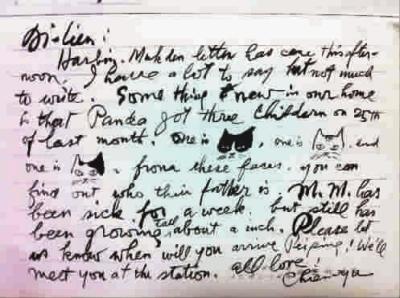 Di-lien:
Harbin. Mukden letter has come this after-
noon. I have a lot to say but not much
to write. Something new in our home
is that Panda got three Childern on 25th
of last month. One is , one is , and
one is . from these faces. you can
find out who their father is. M.M. has
been sick for a week. but still has
been growing tall about a inch. Please let
us know when will you arrive Peiping! We'll
meet you at the station. all love!